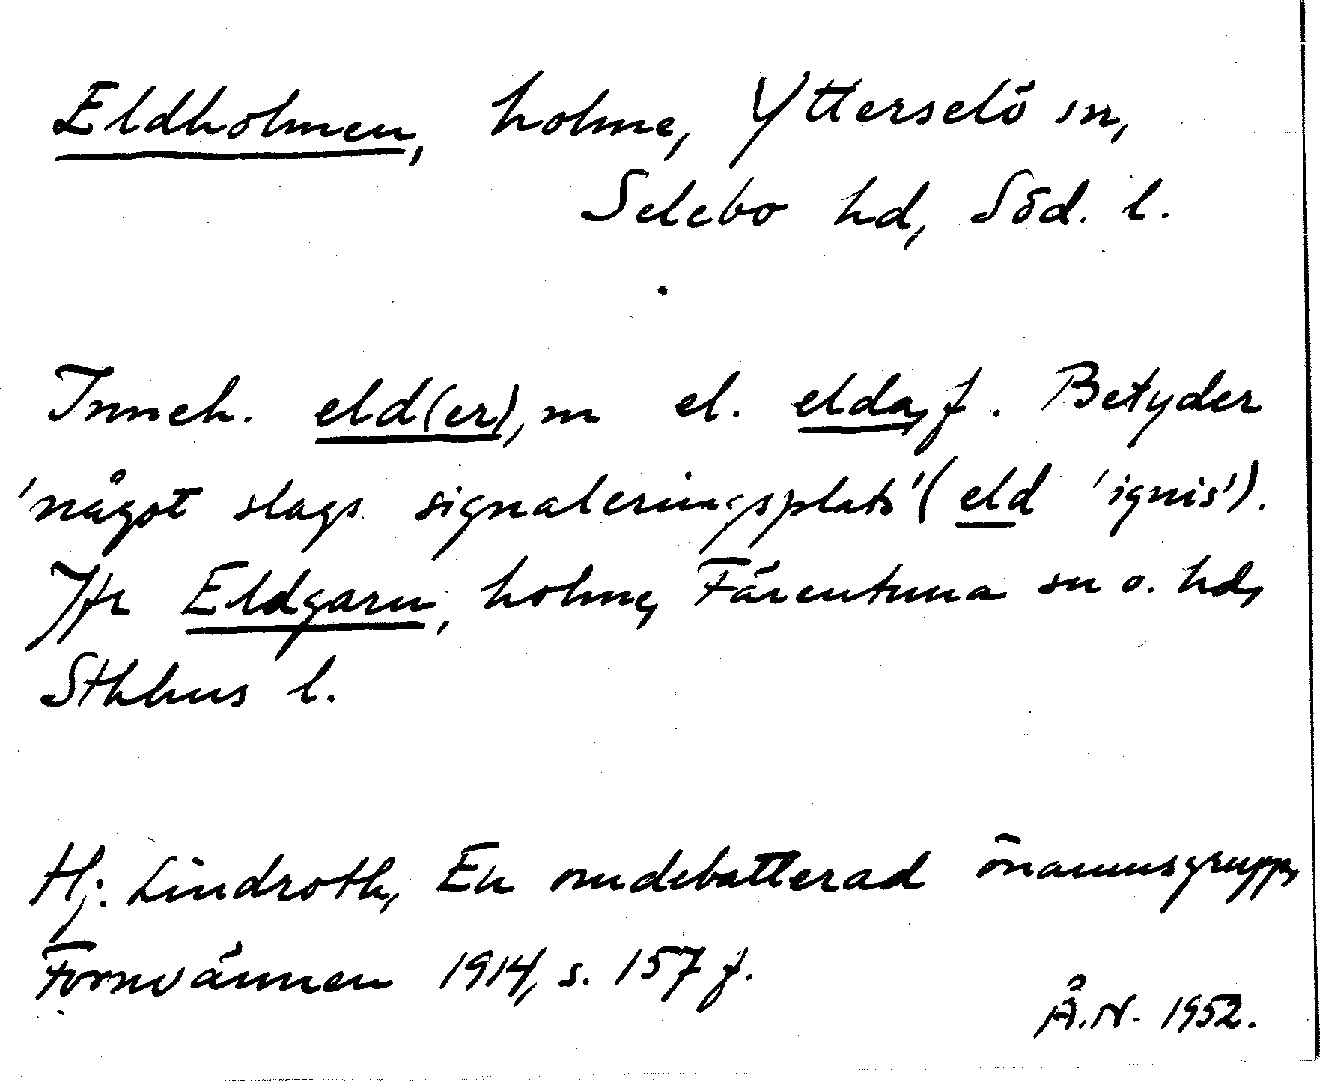 Eldholmen, holme, Ytterselö sn,
Selebo hd, Söd. l.
Inneh. eld(er), m el. elda, f. Betyder
'något slags signaleringsplats' (eld 'ignis').
Jfr Eldgarn, holme, Färentuna sn o. hd,
Sthlms l.
Hj. Lindroth, En omdebatterad önamnsgrupp,
Fornvännen 1914, s. 157 f.
Å.N. 1952.